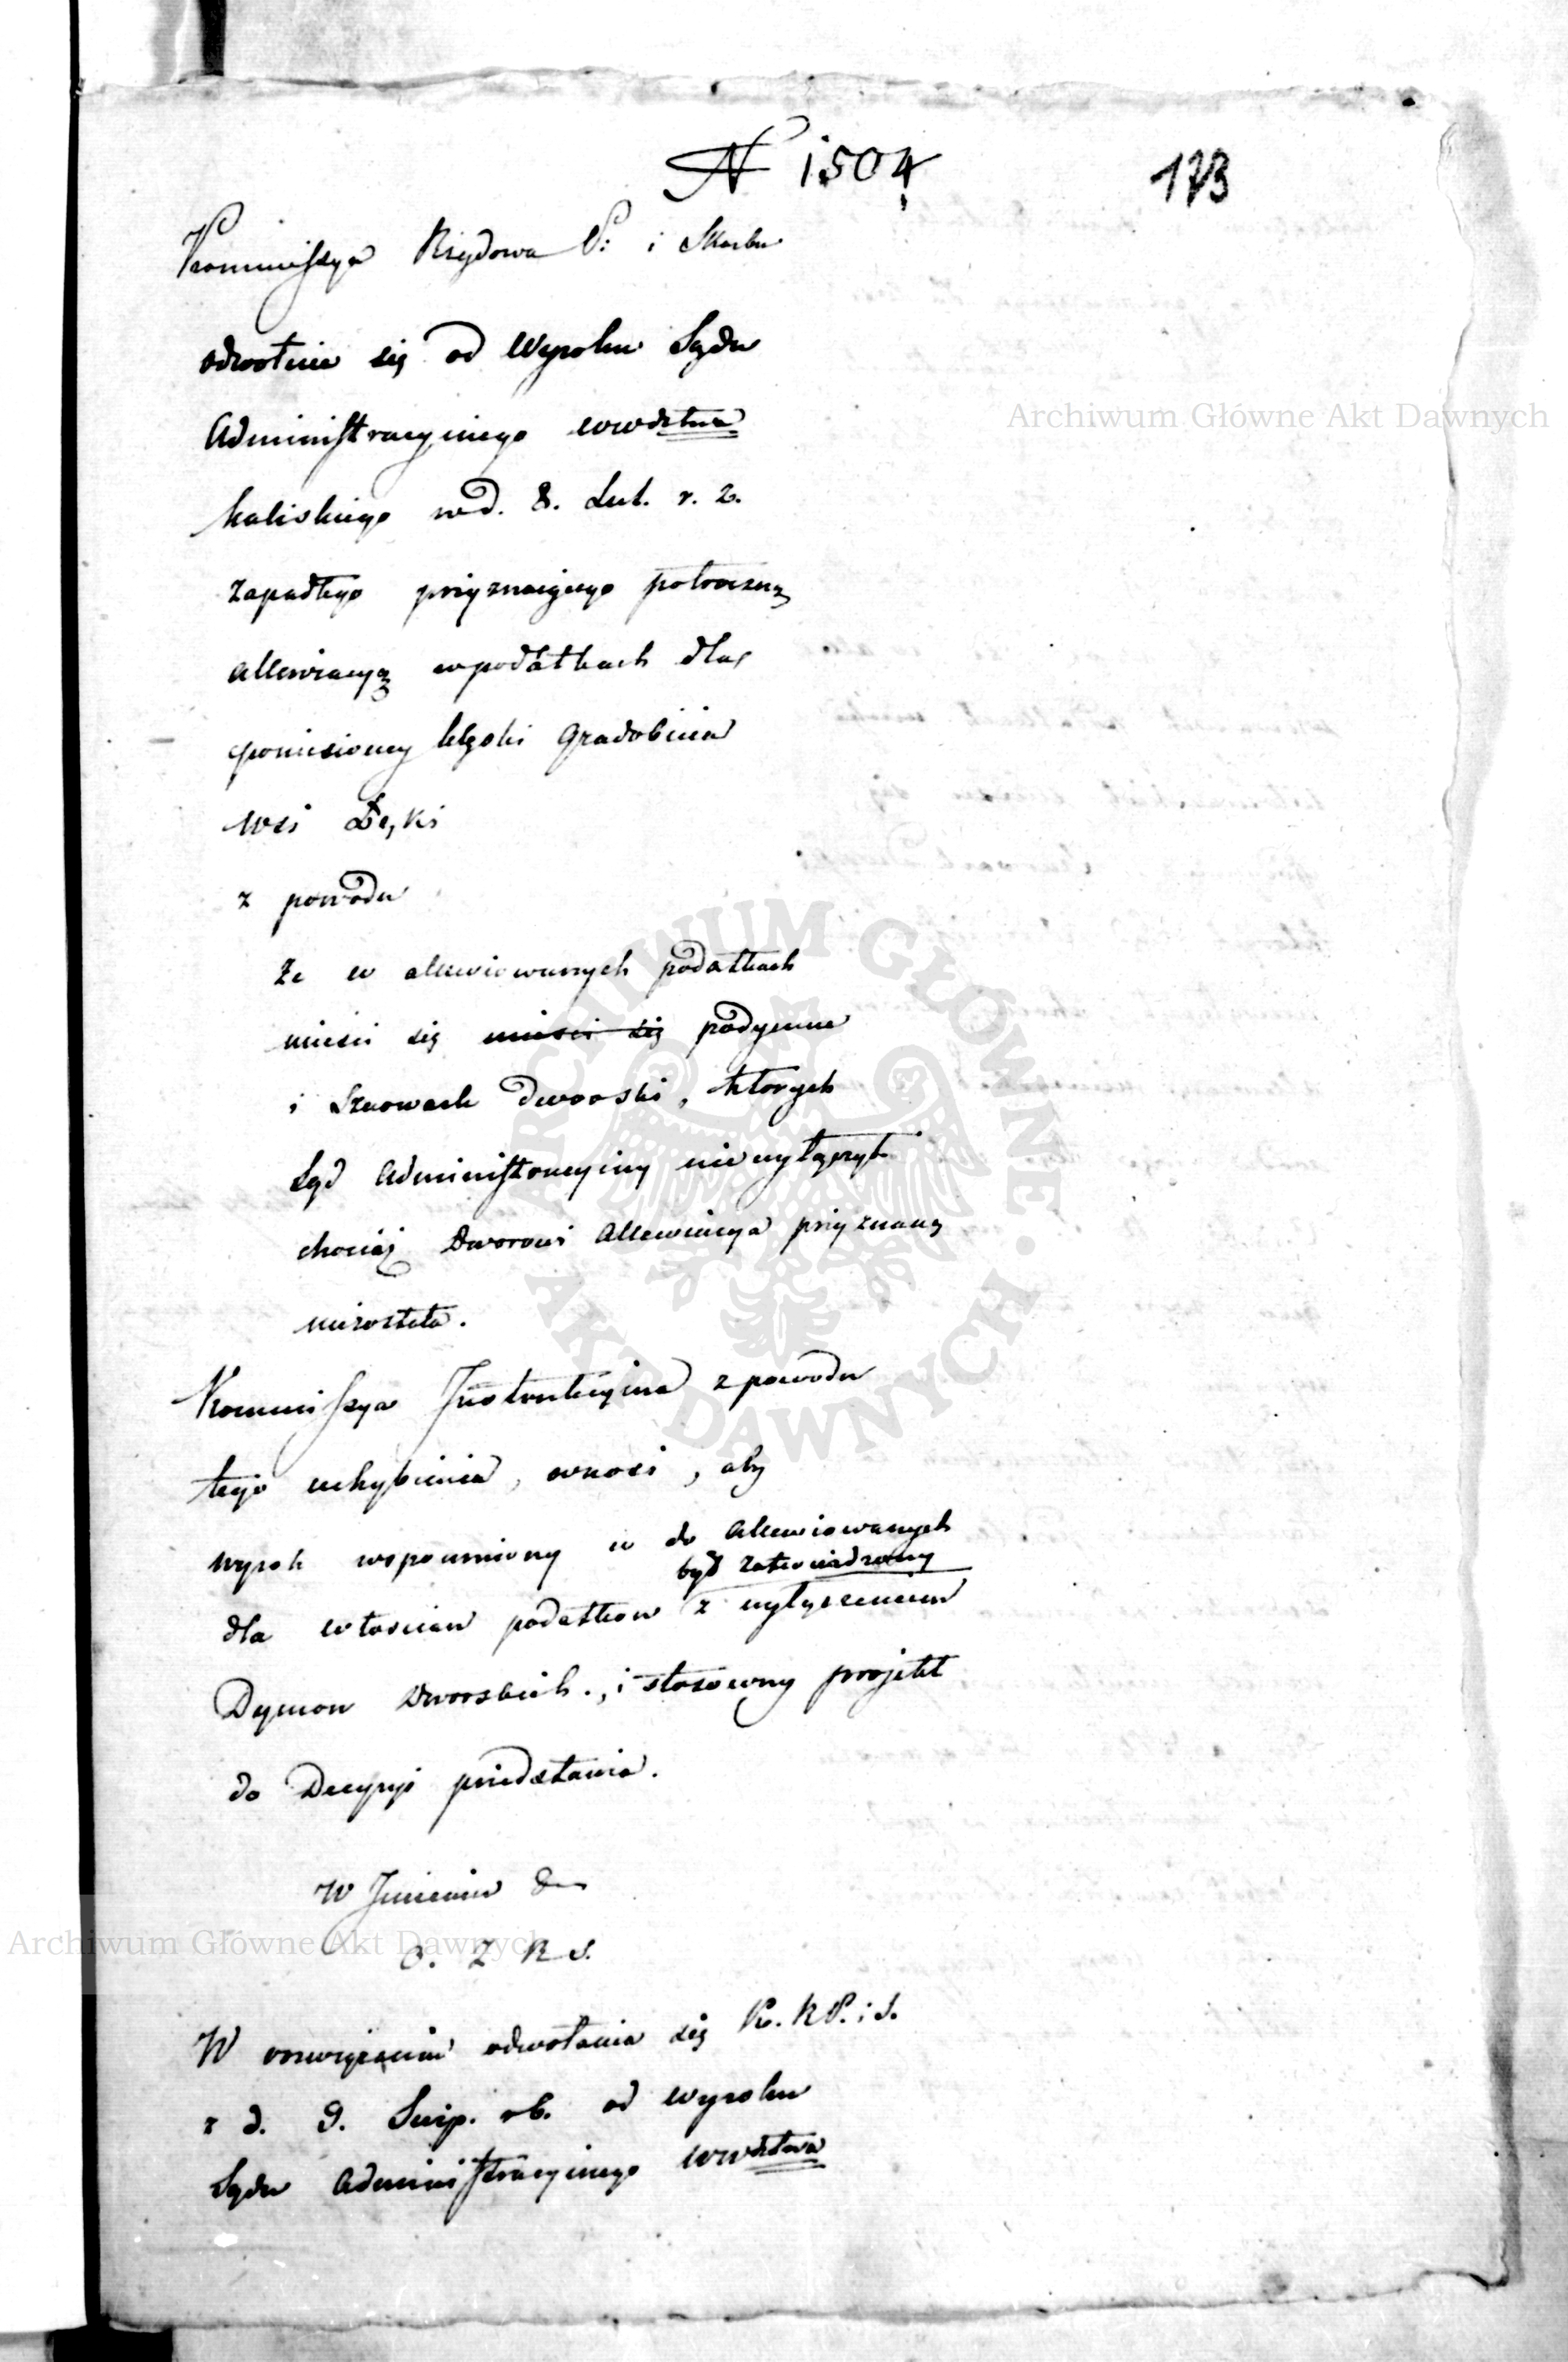 N 1504
173
Kommissya Rządowa P: i Skarbu
odwołuie się od Wyroku Sądu
Administracyinego wwdztwa
Kaliskiego w d. 8. Lut. r. z.
zapadłego przyznaiącego potroczną
allewiacyą w podatkach dla
poniesioney klęski gradobicia
wsi
z powodu
że w alewiowanych podatkach
mieści się mieści się podymne
i Szarwark dworski, których
Sąd Administracyiny niewyłączył
chociaż Dworowi allewiacya przyznaną
niezostała.
Kommissya Instrukcyina z powodu
tego uchybienia, wnosi, aby
wyrok wspomniony w do alewiowanych
był zatwierdzony
dla włościan podatkow z wyłączeniem
Dymow Dworskich., i stosowny projekt
do Decyzyi przedstawia.
W Jmieniu
O. Z K S.
W rozwiązaniu odwołania się K. R P. i S.
z d. 9. Sierp. rb. od Wyroku
Sądu Administracyinego wwdztwa
Archiwum Główne Akt Dawnych
ARCHIWUM GŁÓWNE AKT DAWNYCH
Archiwum Główne Akt Dawnych